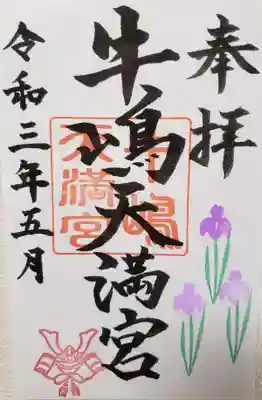 奉拝
牛嶋天満宮
牛嶋天満宮
令和三年五月